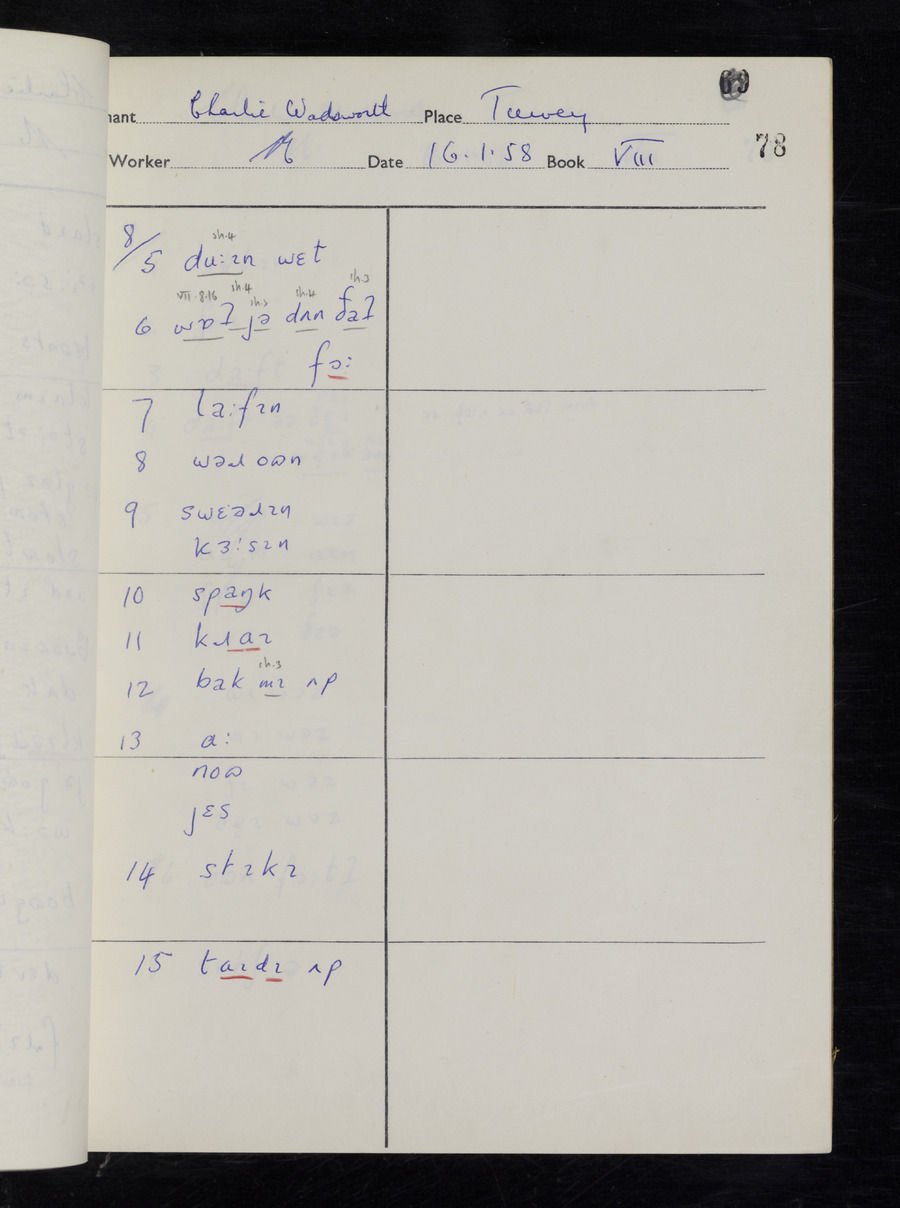 69
ant Charlie Wadsworth Place Turvey
Worker Date 16.1.58 Book VIII 78
8/5 du:ɪn wɛt
sh.4
6 wɒʔ jə dʌn ðaʔ
VII.8.16 sh.4 sh.3 sh.4 sh.3
fɔ:
7 la:fɪn
8 wəɹ oʊn
9 swɛəɹɪn
kɜ:sɪn
10 spaŋk
11 kɹaɪ
12 bak mɪ ʌp
sh.3
13 a:
noʊ
jɛs
14 stɪkɪ
15 taɪdɪ ʌp